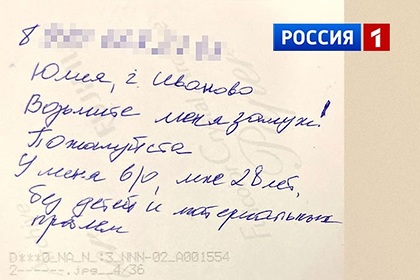 8
РОССИЯ 1
Юлия, г. Иваново
Возьмите меня замуж!
Пожалуйста
У меня в/о, мне 28 лет,
без детей и материальных
проблем
D***D_NA_N_13_NNN-02_A001554
2------.jpg__4/36